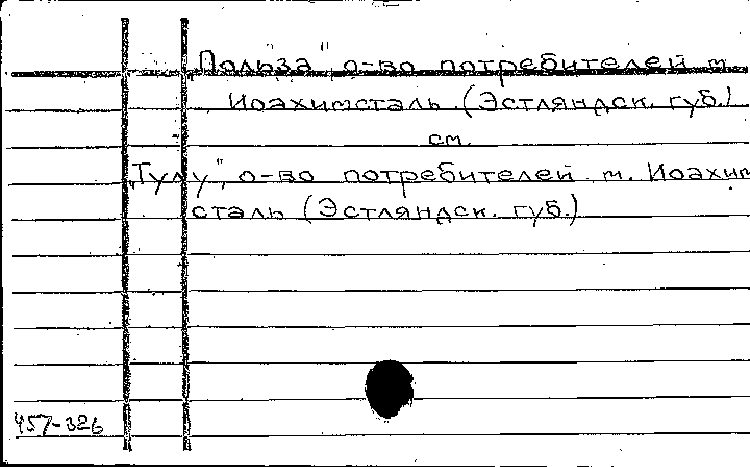 „Польза" о-во потребителей м.
Иоахимсталь (Эстляндск. губ.)
см.
„Тулу", о-во потребителей м. Иоахим
сталь (Эстляндск. губ.)
457-326